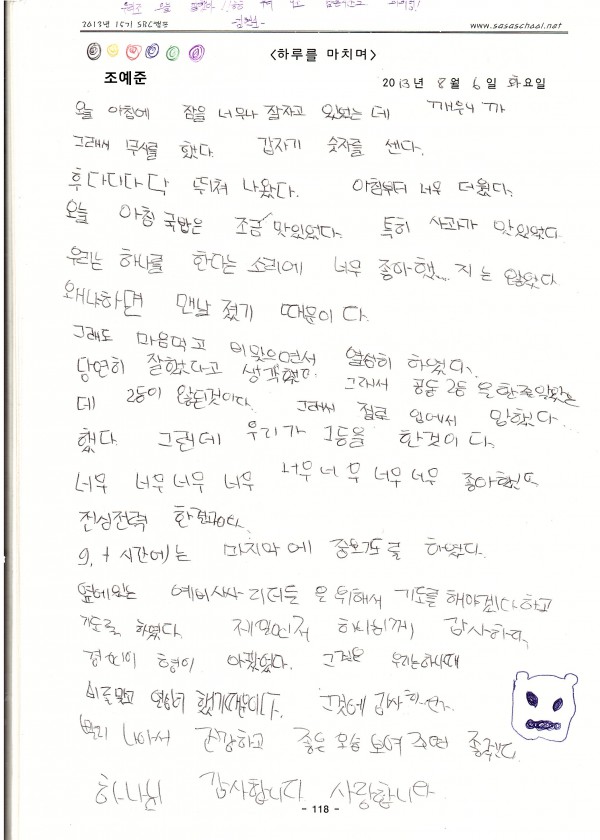 2013년 16기 SRC캠프
www.sasaschool.net
<하루를 마치며>
조예준
2013년 8월 6일 화요일
오늘 아침에 잠을 너무나 잘자고 있었는 데 깨우니 까
그래서 무시를 했다. 갑자기 숫자를 센다.
후다다다닥 뛰쳐 나왔다. 아침부터 너무 더웠다.
오늘 아침 국밥은 조금 맛있었다. 특히 사과가 맛있었다
우리는 하사를 한다는 소리에 너무 좋아했... 지는 않았다
왜냐하면 맨날 졌기 때문이다.
그래도 마음먹고 비맞으면서 열심히 하였다.
당연히 잘했다고 생각했다. 그래서 공동 2등
데 2등이 않된것이다. 그래서 절로 입에서 망했다
했다. 그런데 우리가 1등을 한것이 다.
너무 너무너무 너무 너무너무 너무너무 좋아했다
진심전력 한결과이다.
9, + 시간에는 마지막에 중보기도를 하였다.
옆에있는 예비사사 리더들 을위해서 기도를 해야겠다하고
기도를 하였다. 제일먼저 하나님께 감사하다,
형이 아팠었다. 그것은 우리는하사때
비를맞고 열심히 했기때문이다. 그것에 감사하다.
빨리 나아서 건강하고 좋은 모습 보여 주면 좋겠다
하나님 감사합니다 사랑합니다
- 118 -